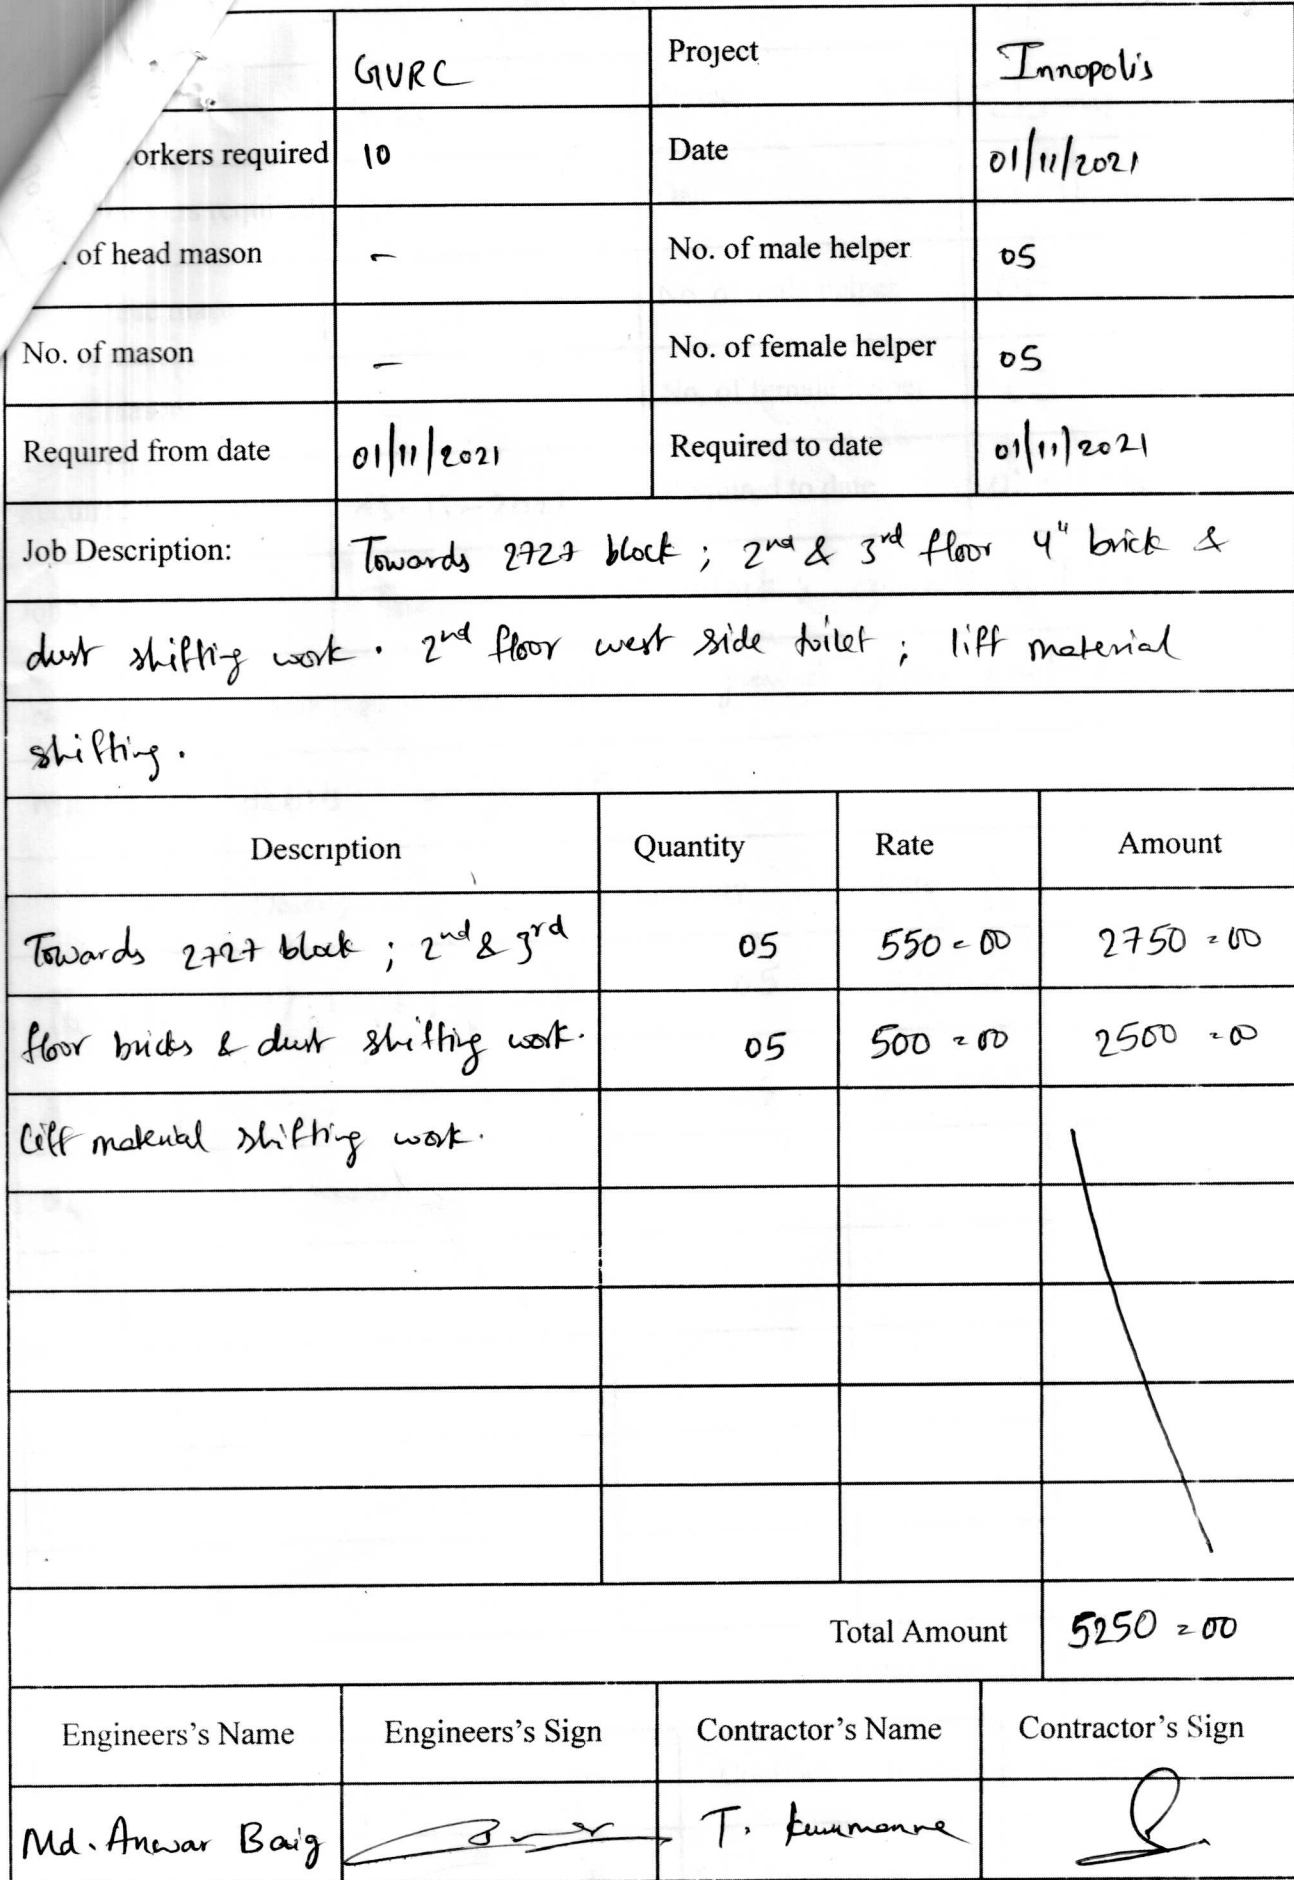 GVRC Project Innopolis
orkers required 10 Date 01/11/2021
. of head mason - No. of male helper 05
No. of mason - No. of female helper 05
Required from date 01/11/2021 Required to date 01/11/2021
Job Description: Towards 2727 block ; 2nd & 3rd floor 4" brick &
dust shifting work . 2nd floor west side toilet ; lift material
shifting .
Description Quantity Rate Amount
Towards 2727 block ; 2nd & 3rd 05 550=00 2750=00
floor bricks & dust shifting work. 05 500=00 2500=00
lift material shifting work.
Total Amount 5250=00
Engineers's Name Engineers's Sign Contractor's Name Contractor's Sign
Md. Anwar Baig T.